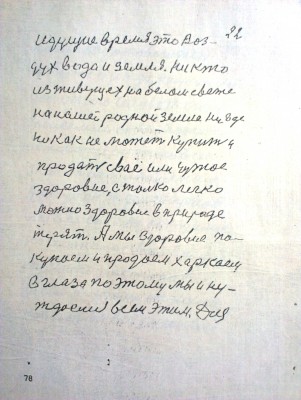 идущие время это воз- 22
дух вода и земля. Никто
из живущех на белом свете
на нашей родной земле нигде
никак не может купить
продать своё или чужое
здоровие, столко легко
можно здоровие в природе
терят. А мы здоровие по-
купаем и продаем харкаем
в глаза поэтому мы и ну-
ждаемся всем этим. Для
78